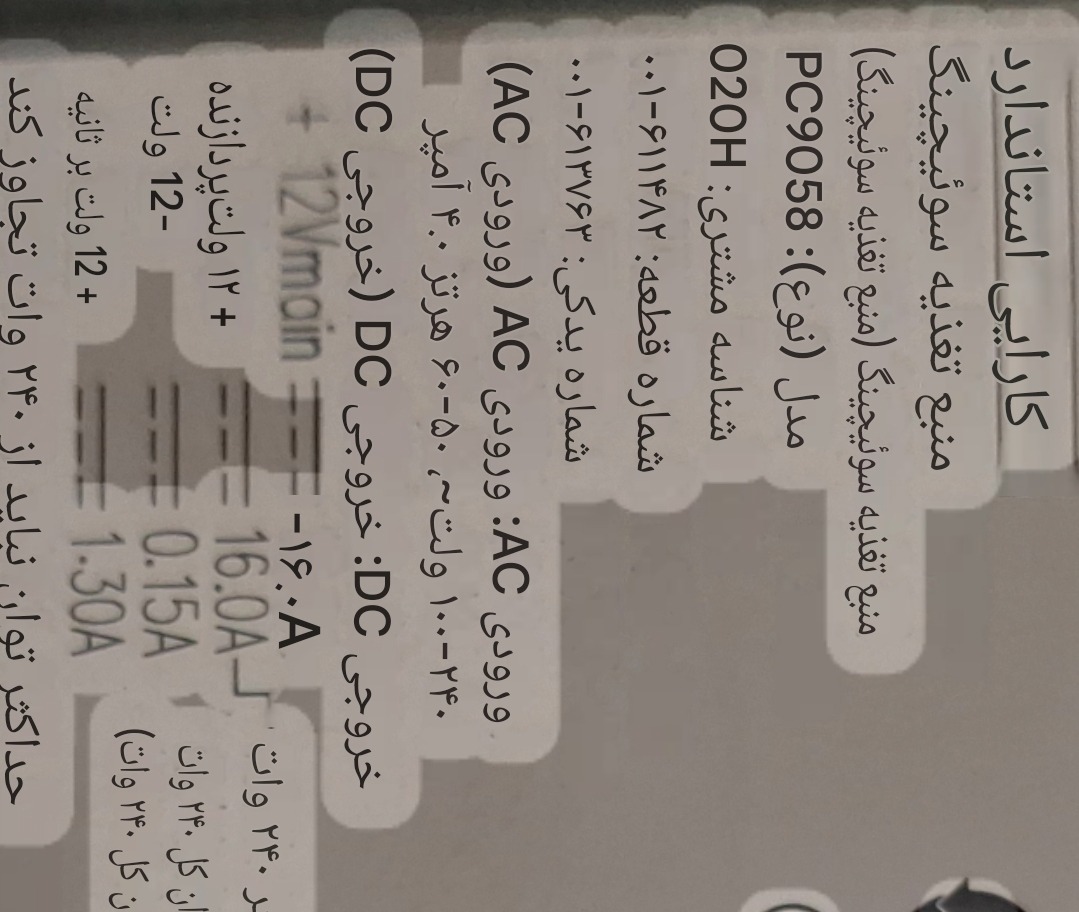 کارایی استاندارد
منبع تغذیه سوئیچینگ
منبع تغذیه سوئیچینگ (منبع تغذیه سوئیچینگ)
مدل (نوع): PC9058
شناسه مشتری: 020H
شماره قطعه: ۶۱۱۴۸۲-۰۰۱
شماره یدکی: ۶۱۳۷۶۳-۰۰۱
ورودی AC: ورودی AC (ورودی AC)
۱۰۰-۲۴۰ ولت~، ۵۰-۶۰ هرتز ۴.۰ آمپر
خروجی DC: خروجی DC (خروجی DC)
+ 12Vmain -۱۶.۰A
+ ۱۲ ولت‌پردازنده 16.0A
-12 ولت 0.15A
+ 12 ولت بر ثانیه 1.30A
۲۴۰ وات
کل ۲۴۰ وات
کل ۲۴۰ وات)
حداکثر توان نباید از ۲۴۰ وات تجاوز کند